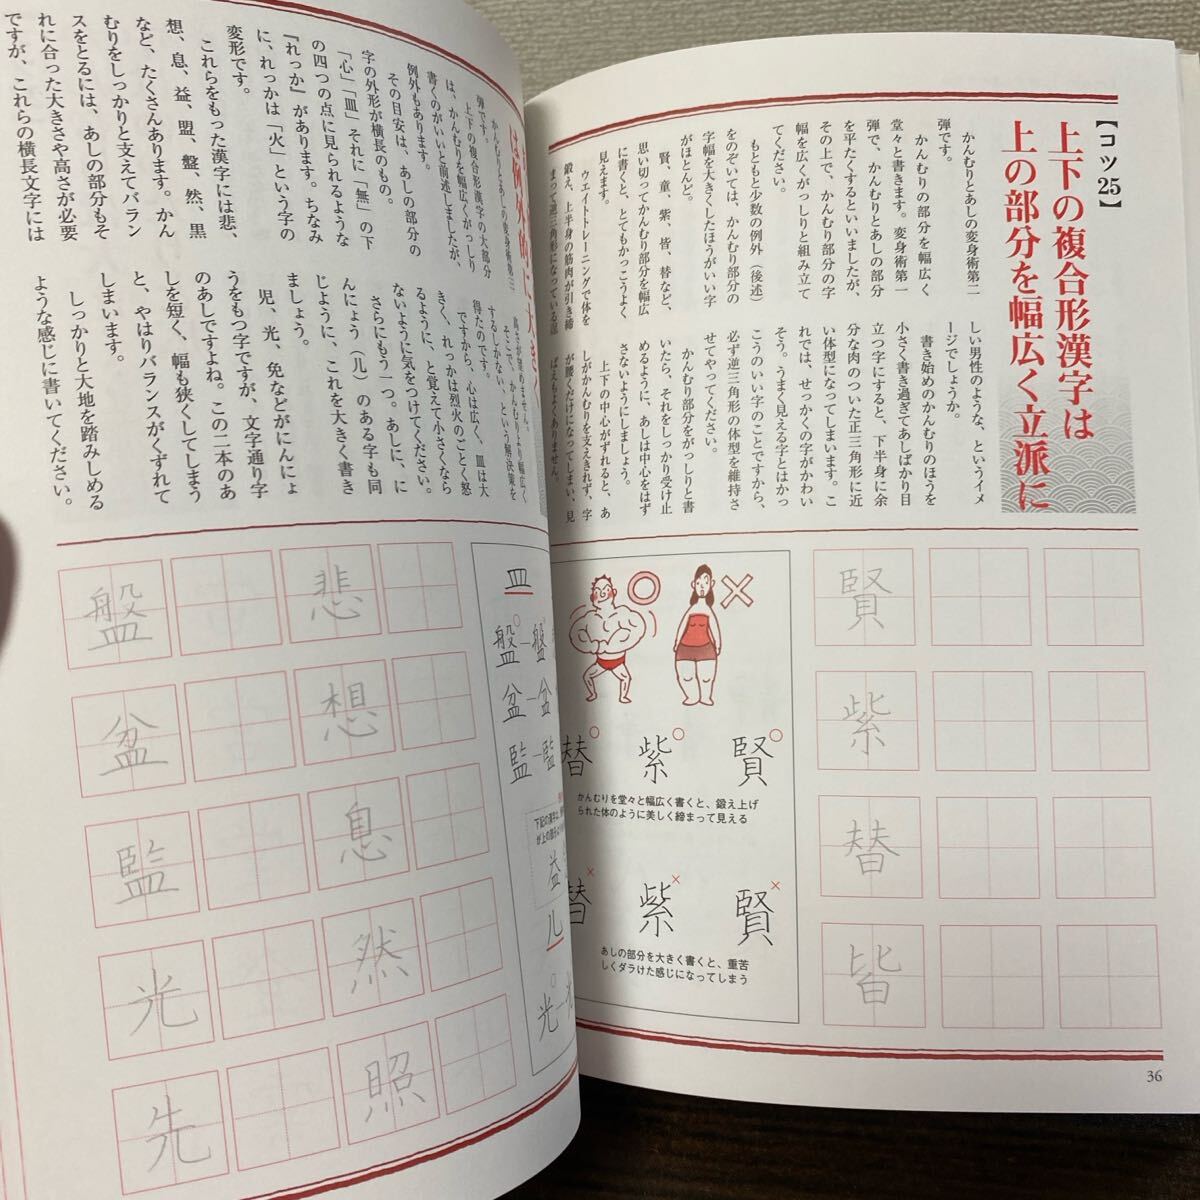 【コツ25】
上下の複合形漢字は
上の部分を幅広く立派に
かんむりとあしの変身術第二
弾です。
かんむりの部分を幅広く
堂々と書きます。変身術第一
弾で、かんむりとあしの部分
を平たくするといいましたが、
その上で、かんむり部分の字
幅を広くがっしりと組み立て
てください。
もともと少数の例外（後述）
をのぞいては、かんむり部分の
字幅を大きくしたほうがいい字
がほとんど。
賢、童、紫、皆、替など、
思い切ってかんむり部分を幅広
に書くと、とてもかっこうよく
見えます。
ウエイトトレーニングで体を
鍛え、上半身の筋肉が引き締
まって逆三角形になっている逞
しい男性のような、というイメ
ージでしょうか。
書き始めのかんむりのほうを
小さく書き過ぎてあしばかり目
立つ字にすると、下半身に余
分な肉のついた正三角形に近
い体型になってしまいます。こ
れでは、せっかくの字がかわい
そう。うまく見える字とはかっ
こうのいい字のことですから、
必ず逆三角形の体型を維持さ
せてやってください。
かんむり部分をがっしりと書
いたら、それをしっかり受け止
めるように、あしは中心をはず
さないようにしましょう。
上下の中心がずれると、あ
しがかんむりを支えきれず、字
が腰くだけになってしまい、見
ばえもよくありません。
賢
紫
替
皆
賢
紫
替
かんむりを堂々と幅広く書くと、鍛え上げ
られた体のように美しく締まって見える
賢
紫
替
あしの部分を大きく書くと、重苦
しくダラけた感じになってしまう
36
は例外的に大きく
かんむりとあしの変身術第三
弾です。
上下の複合形漢字の大部分
は、かんむりを幅広くがっしり
書くのがいいと前述しましたが、
例外もあります。
その目安は、あしの部分の
字の外形が横長のもの。
「心」「皿」それに「無」の下
の四つの点に見られるような
『れっか』があります。ちなみ
に、れっかは「火」という字の
変形です。
これらをもった漢字には悲、
想、息、益、盟、盤、然、黒
など、たくさんあります。かん
むりをしっかりと支えてバラン
スをとるには、あしの部分もそ
れに合った大きさや高さが必要
ですが、これらの横長文字には
高さが望めません。
そこで、かんむりより幅広く
するしかない、という解決策を
得たのです。
ですから、心は広く、皿は大
きく、れっかは烈火のごとく怒
るように、と覚えて小さくなら
ないように気をつけてください。
さらにもう一つ。あしに、に
んにょう（儿）のある字も同
じように、これを大きく書き
ましょう。
児、光、免などがにんにょ
うをもつ字ですが、文字通り字
のあしですよね。この二本のあ
しを短く、幅も狭くしてしまう
と、やはりバランスがくずれて
しまいます。
しっかりと大地を踏みしめる
ような感じに書いてください。
皿
盤
盤
盆
盆
監
監
益
儿
光
悲
想
息
然
照
盤
盆
監
光
先